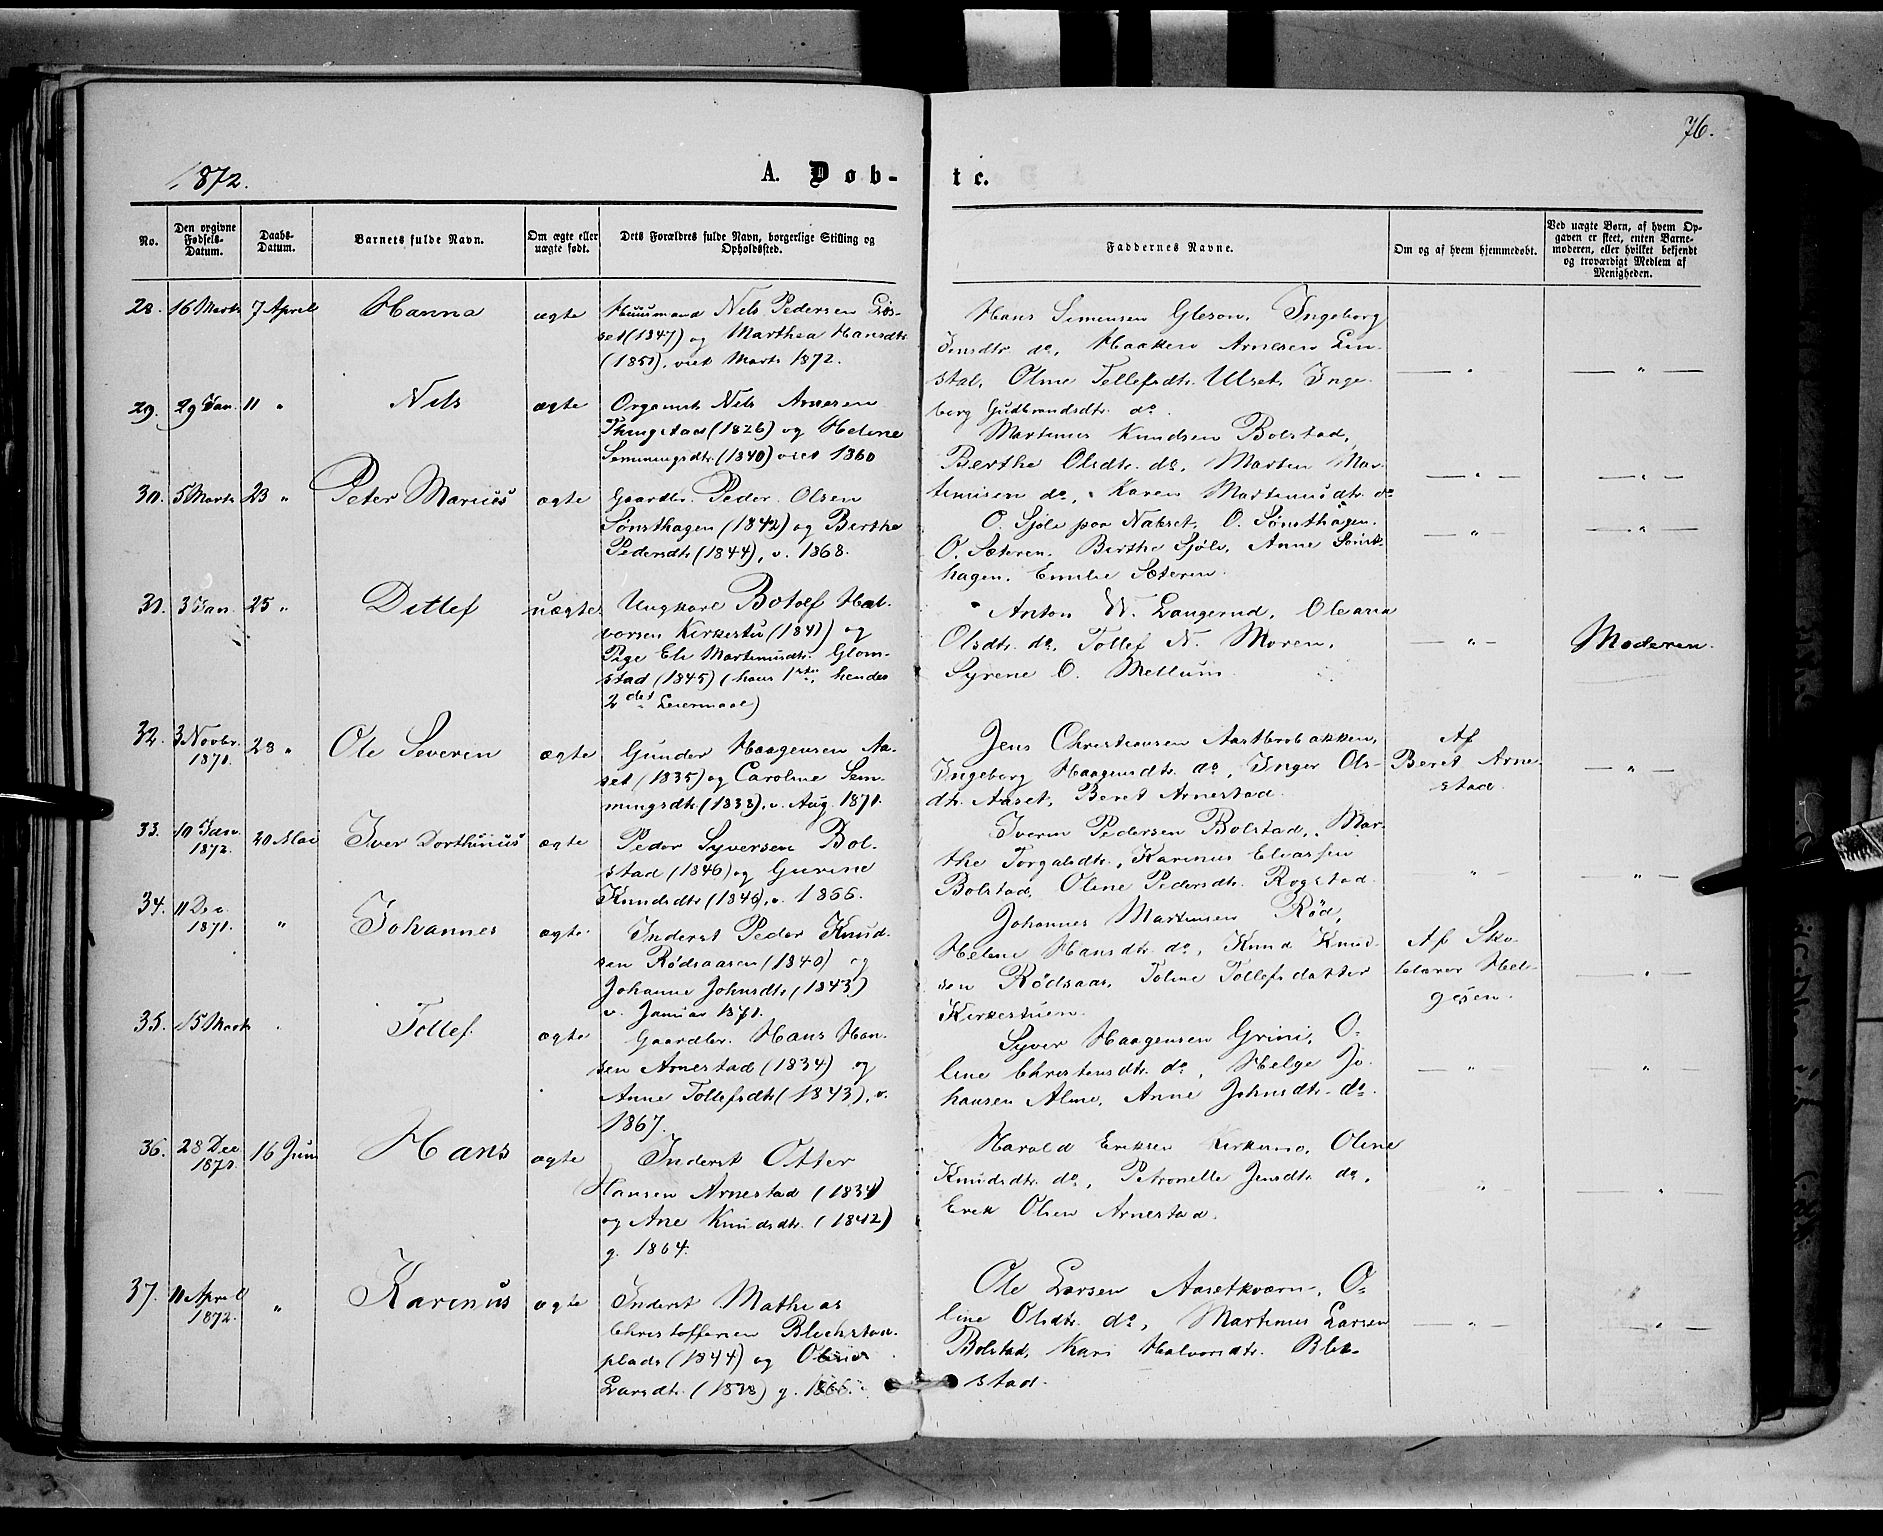 76.
1872.
A. Døb-
te.
No.
Den opgivne Fødsels-Datum.
Daabs-Datum.
Barnets fulde Navn.
Om ægte eller uægte født.
Dets Forældres fulde Navn, borgerlige Stilling og Opholdssted.
Faddernes Navne.
Om og af hvem hjemmedøbt.
Ved uægte Børn, af hvem Opgaven er skeet, enten Barnemoderen, eller hvilket bekjendt og troværdigt Medlem af Menigheden.
28. 16 Marts 7 April Hanna ægte
Huusmand Nels Pedersen
set (1847) og Marthea Hansdtr.
(1851), viet Marts 1872.
Hans Simensen Gleson, Ingeborg
Jensdtr. do, Haaken Arnesen Lin-
stad, Oline Tollefsdtr. Ulset, Inge-
borg Gudbrandsdtr. do.
29. 29 Jan. 11 " Nels ægte
Organist Nels Arnesen
Thingstad (1826) og Helene
Semmingsdtr. (1840) viet 1860
Martinus Knudsen Bolstad,
Berthe Olsdtr. do, Marten Mar-
tinisen do, Karen Martinusdtr. do
30. 5 Marts 23 " Peter Marius ægte
Gaardbr. Peder Olsen
Sønsthagen (1842) og Berthe
Pedersdtr. (1844), v. 1868.
O. Sjøli paa Nakset, O. Sønsthagen,
O. Sæteren, Berthe Sjøli, Anne Sønst-
hagen, Emilie Sæteren.
31. 3 Jan. 25 " Ditlef uægte
Ungkarl Botolf Hal-
vorsen Kirkestu (1841) og
Pige Eli Martinusdtr. Glom-
stad (1845) (hans 1ste, hendes
2det Leiermaal)
Anton N. Langerud, Oleana
Olsdtr. do, Tollef N. Moren,
Syrene O. Mellum.
Moderen.
32. 3 Novbr. 1871. 28 " Ole Severin ægte
Gunder Haagensen Aa-
set (1835) og Caroline Sem-
mingsdtr. (1838), v. Aug. 1871.
Jens Christiansen Aastbrobakken,
Ingeborg Haagensdtr. do, Inger Ols-
dtr. Aaset, Beret Arnestad.
Af
Beret Arne-
stad.
33. 10 Jan. 1872. 20 Mai Iver Dorthinius ægte
Peder Syversen Bol-
stad (1846) og Gurine
Knudsdtr. (1846), v. 1866.
Iverin Pedersen Bolstad, Mar-
the Torgalsdtr., Karinus Eliassen
Bolstad, Oline Pedersdtr. Rogstad.
34. 11 Dec. 1871. " Johannes ægte
Inderst Peder Knud-
sen Rødsaasen (1840) og
Johanne Johnsdtr. (1843)
v. Januar 1871.
Johannes Martinsen Rød,
Helene Hansdtr. do, Knud Knud-
sen Rødsaas, Toline Tollefsdatter
Kirkestuen.
Af Sko-
lærer Hel-
gesen.
35. 15 Marts " Tollef. ægte
Gaardbr. Hans Han-
sen Arnestad (1834) og
Anne Tollefsdtr. (1843), v.
1867.
Syver Haagensen Grini, O-
line Christensdtr. do, Helge Jo-
hansen Alme, Anne Johnsdtr. do.
36. 28 Dec 1871. 16 Juni Hans ægte
Inderst Otter
Hansen Arnestad (1834)
og Ane Knudsdtr. (1842)
g. 1864.
Harald Eriksen Kirkemo, Oline
Knudsdtr. do, Petronelle Jensdtr. do,
Erik Olsen Arnestad.
37. 11 April 1872. " Karinus ægte
Inderst Mathias
Christoffersen
plads (1844) og
Larsdtr. (1838) g.
Ole Larsen Aasetkværn, O-
line Olsdtr. do, Martinus Larsen
Bolstad, Kari Halvorsdtr. Blik-
stad.